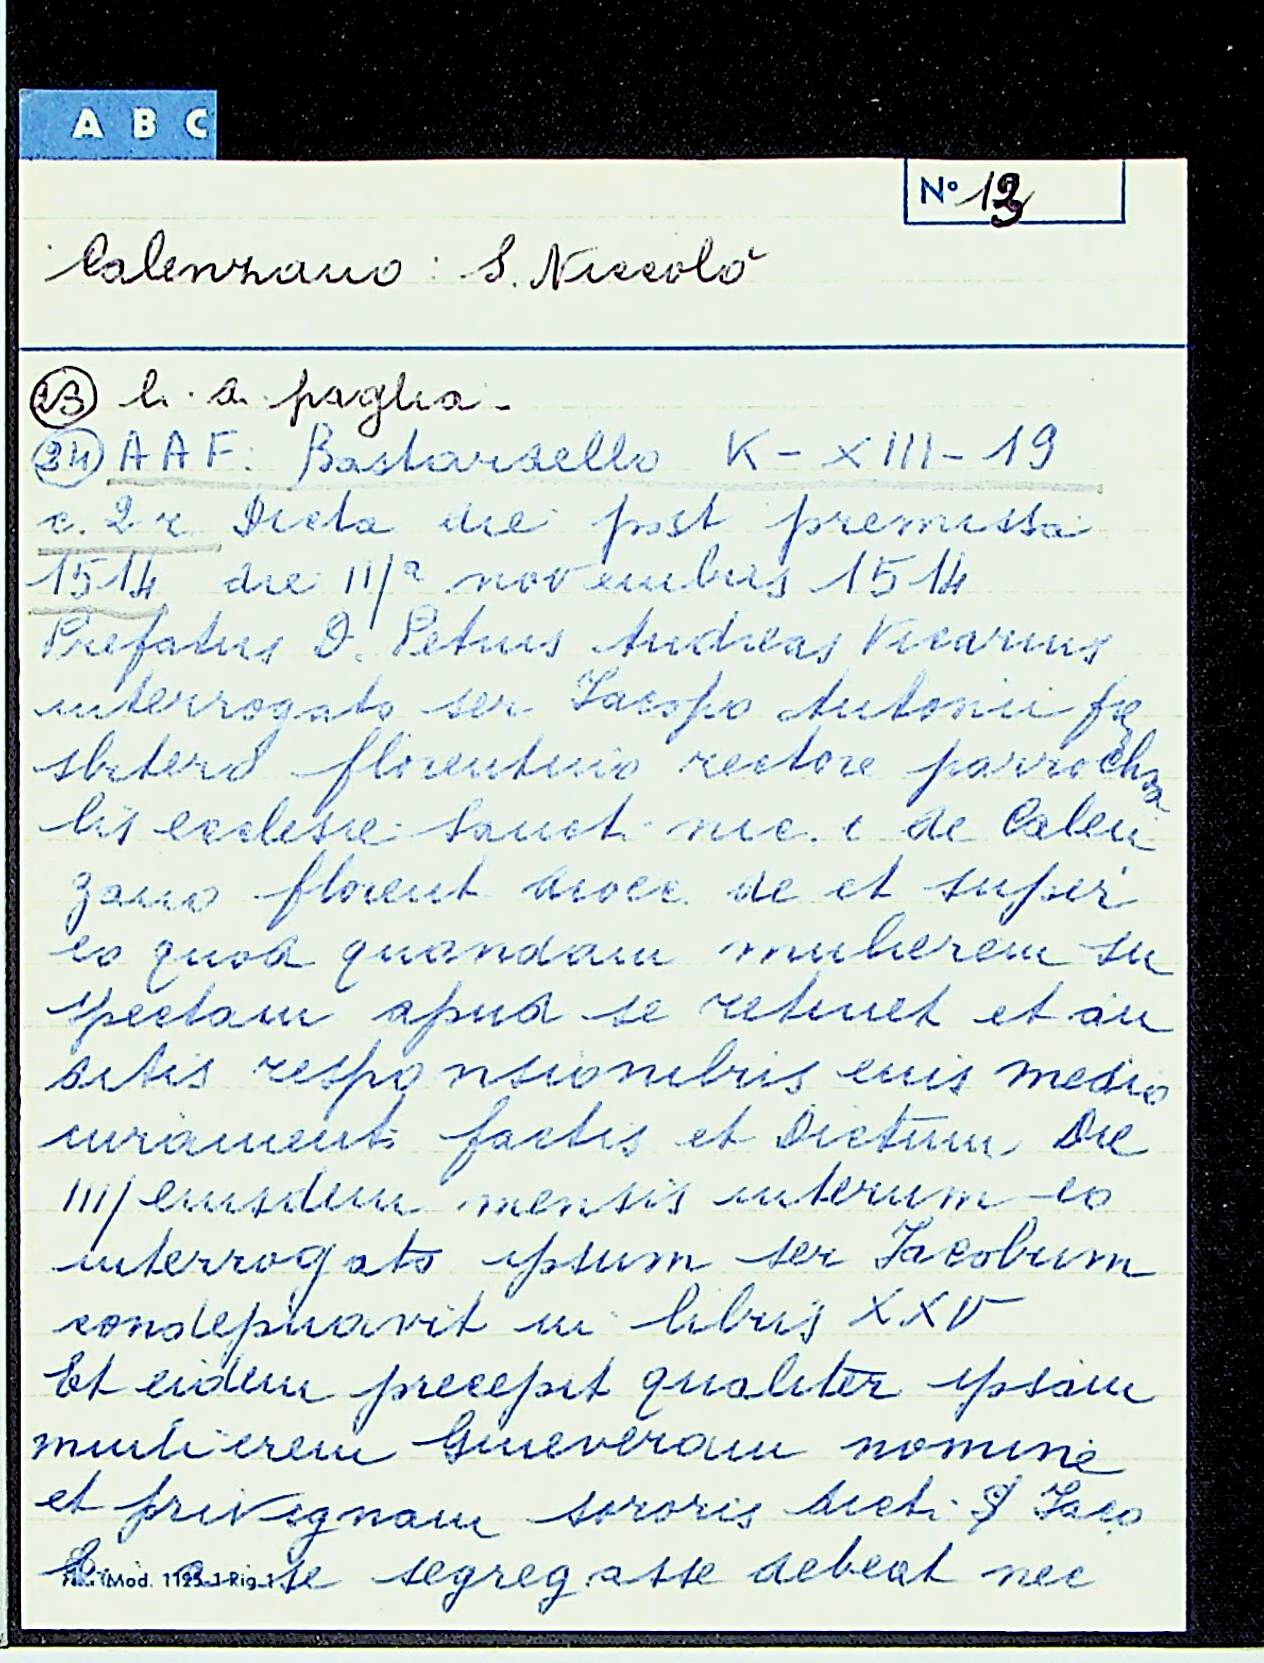 A B C
N° 13
Calenzano: S. Niccolò
23 l. a. paglia.
24 AAF. Bastardello K-XIII-19
c. 2 r Dicta die post premissa
1514 die III/a novembris 1514
Prefatus D. Petrus Andreas Vicarius
interrogato ser Iacopo Antonii pre
sbitero florentino rectore parrochia
lis ecclesie Sancti nic. i de Calen
zano florent dioec. de et super
eo quod quandam mulierem su
spectam apud se retinet et au
ditis responsionibus eius medio
iuramenti factis et Dictum Die
III/ eiusdem mensis interum eo
interrogato ipsum ser Iacobum
condepnavit in libris XXV
Et eidem precepit qualiter ipsam
mulierem Gineveram nomine
et privignam sororis dicti S/ Iaco
bi a se segregasse debeat nec